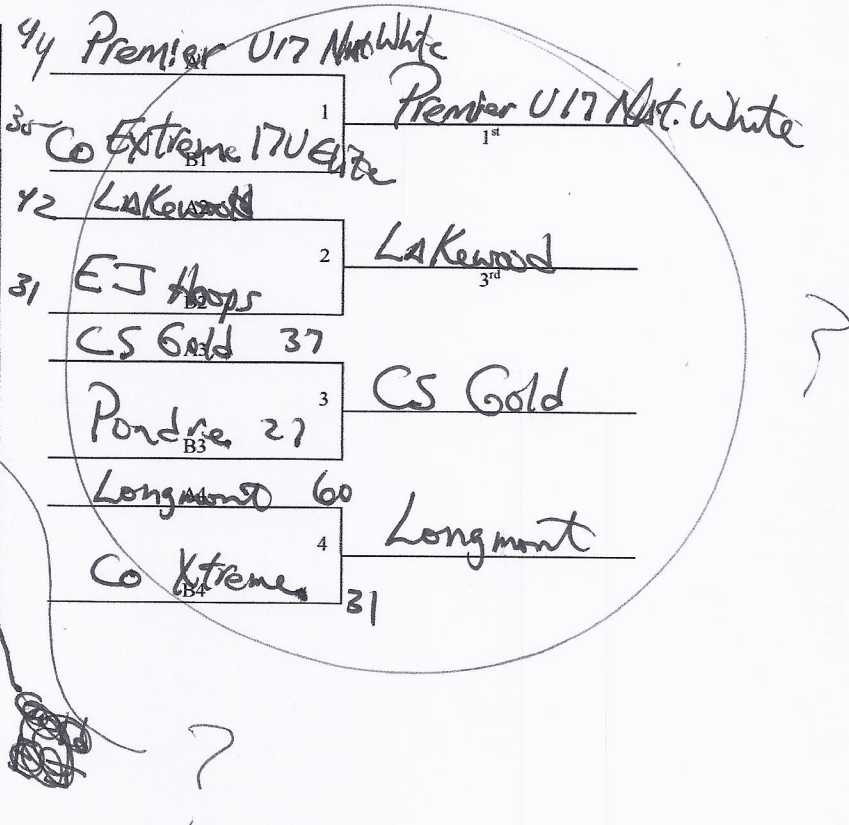 44 Premier U17 Nat. White
A1
1
Premier U17 Nat. White
1st
35 Co Extreme 17U Elite
B1
42 Lakewood
A2
2
Lakewood
3rd
31 EJ Hoops
B2
CS Gold 37
A3
3
CS Gold
Pondre 27
B3
Longmont 60
A4
4
Longmont
Co Xtreme 31
B4
?
?